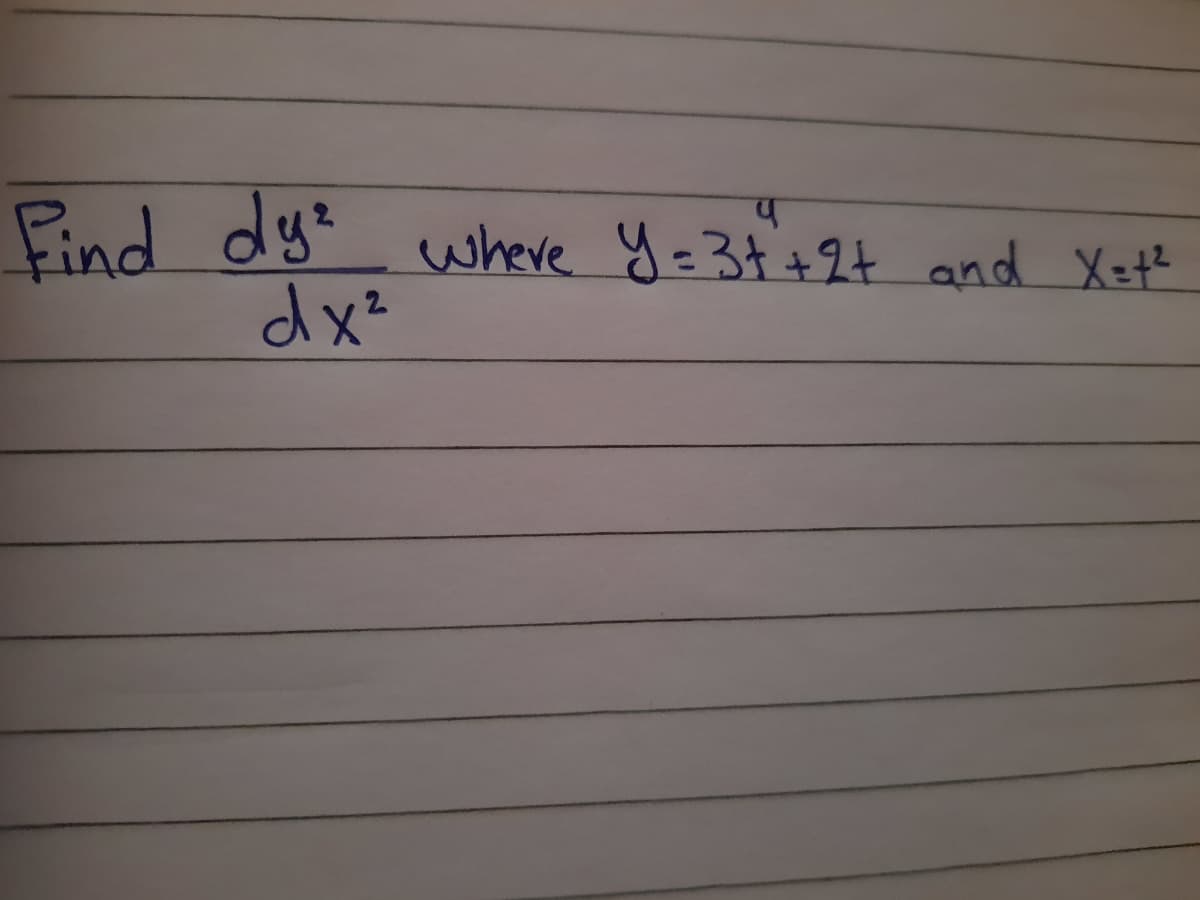 Find dy²/dx² where y=3t⁴+2t and x=t²